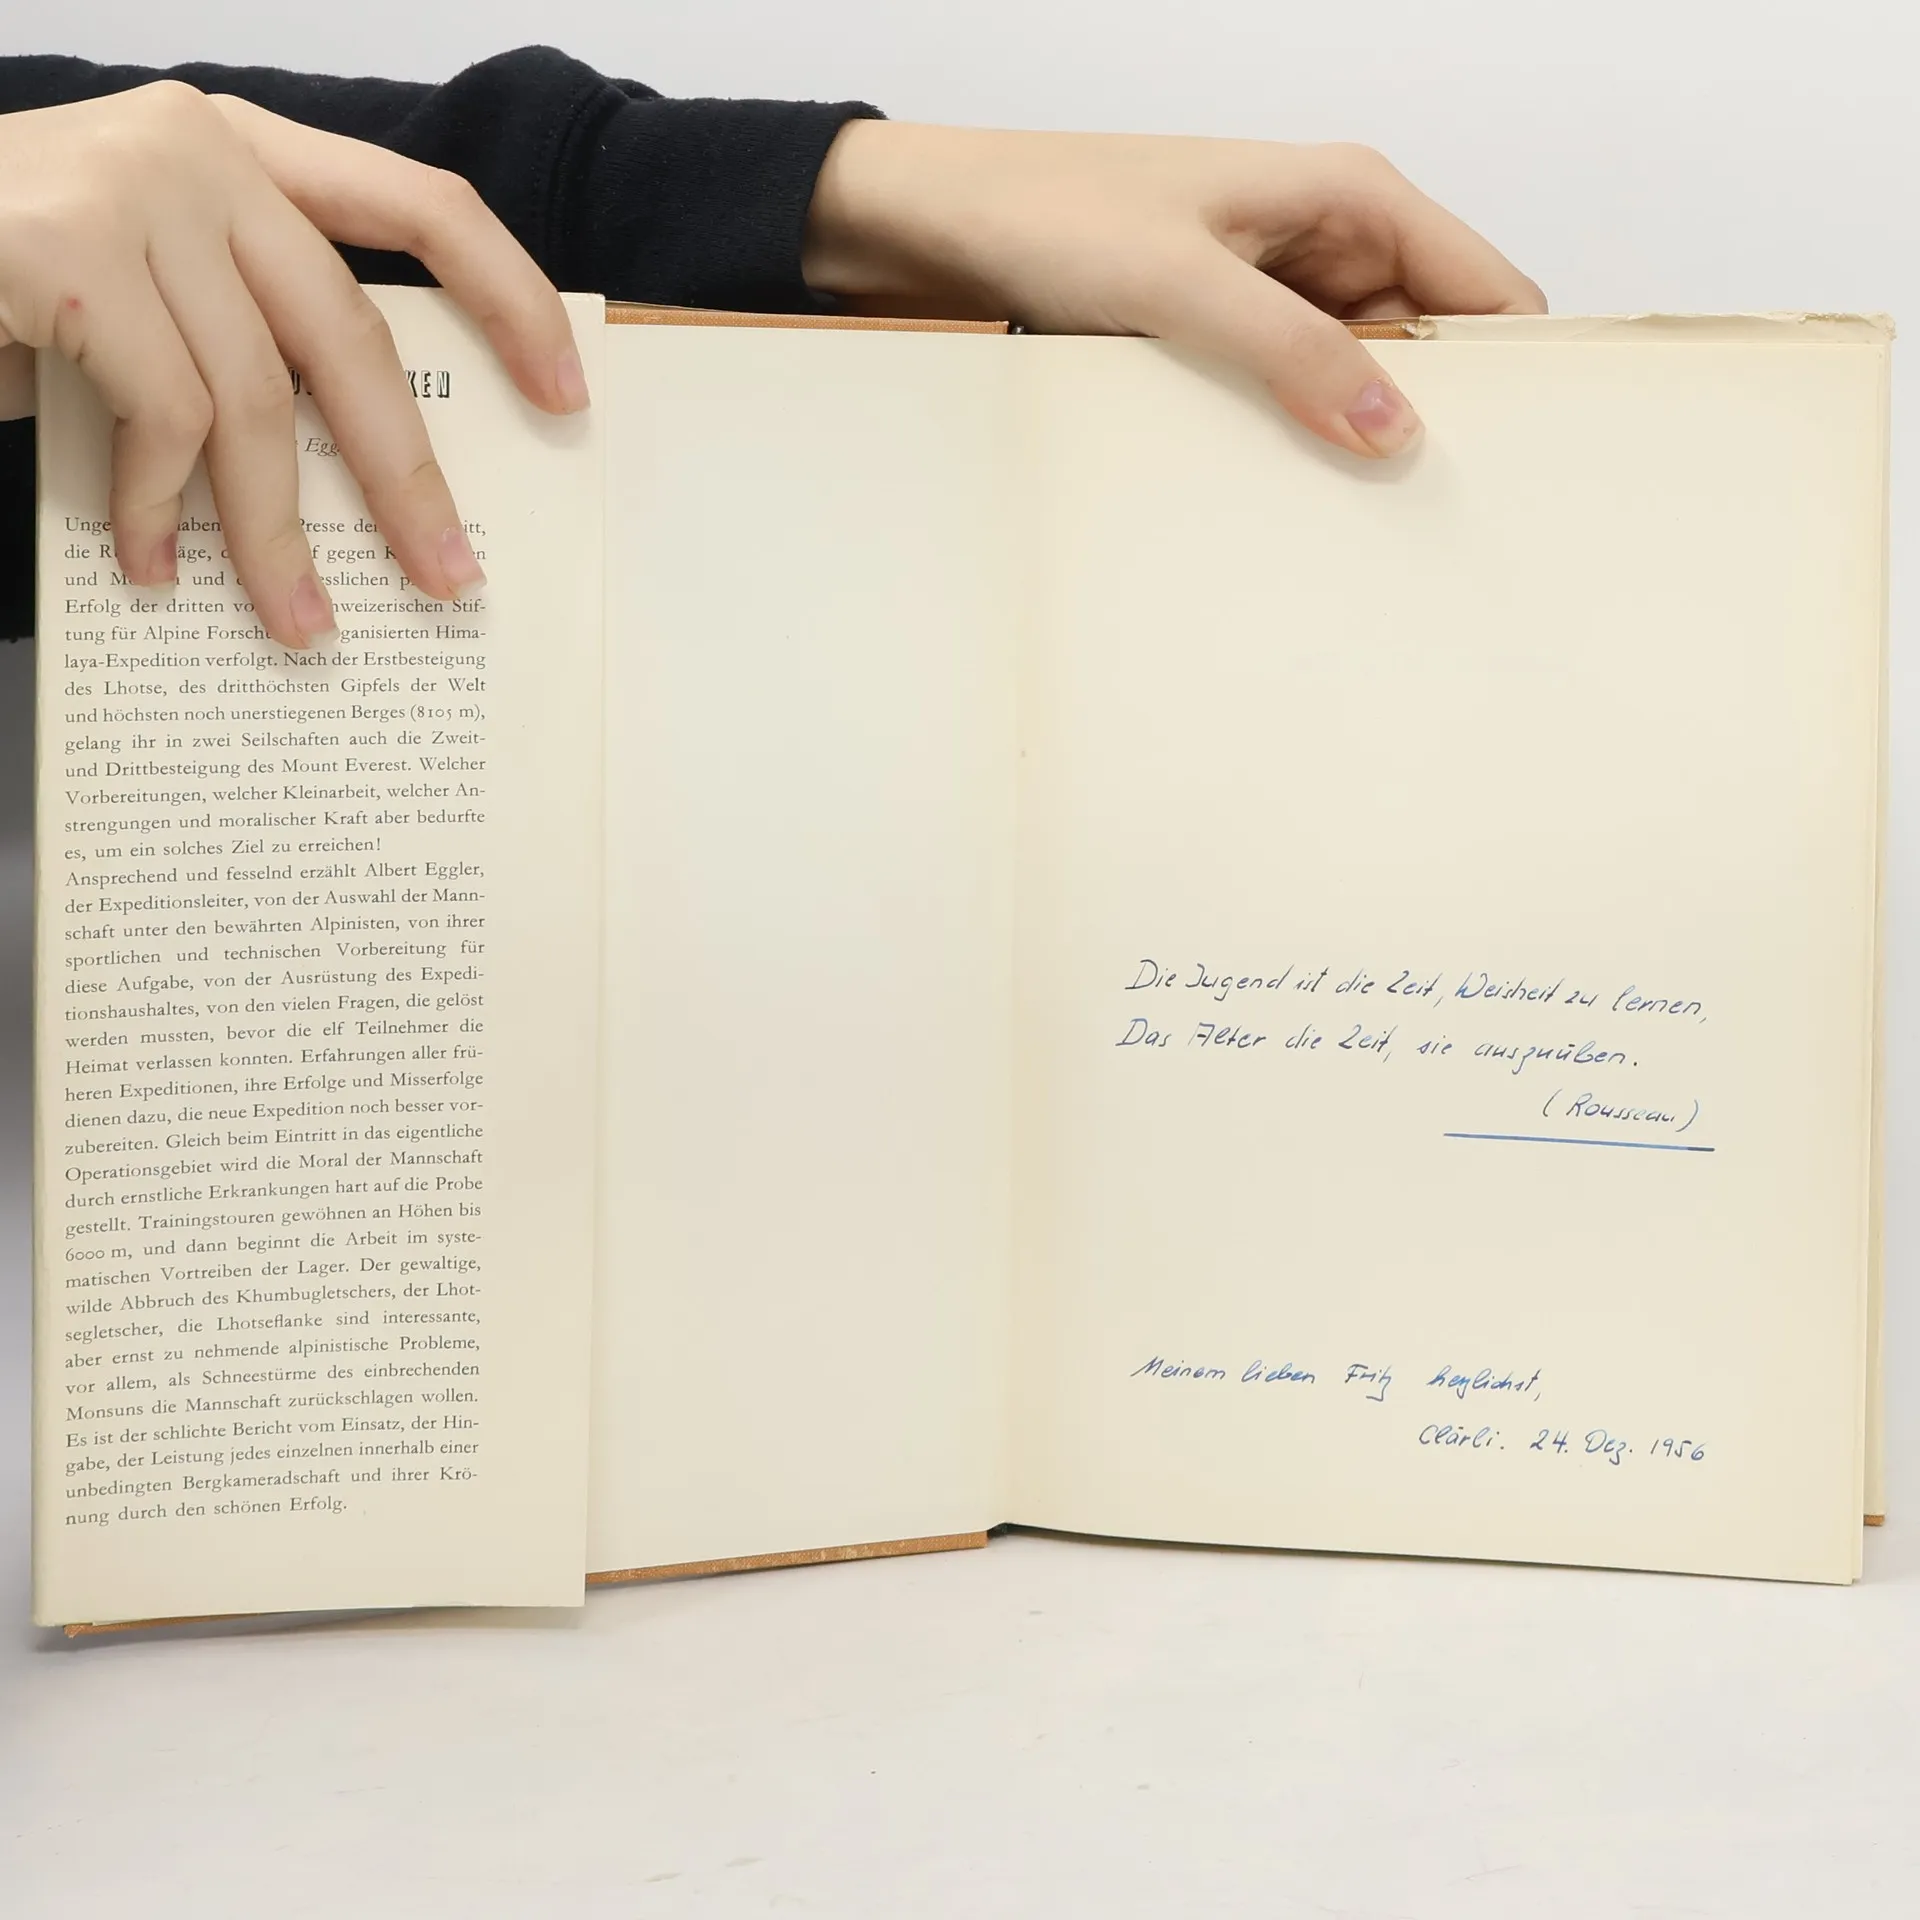 KEN
Egg
Unge haben Presse der itt,
die R äge, d f gegen K n
und M und esslichen p
Erfolg der dritten vo hweizerischen Stif-
tung für Alpine Forsch ganisierten Hima-
laya-Expedition verfolgt. Nach der Erstbesteigung
des Lhotse, des dritthöchsten Gipfels der Welt
und höchsten noch unerstiegenen Berges (8105 m),
gelang ihr in zwei Seilschaften auch die Zweit-
und Drittbesteigung des Mount Everest. Welcher
Vorbereitungen, welcher Kleinarbeit, welcher An-
strengungen und moralischer Kraft aber bedurfte
es, um ein solches Ziel zu erreichen!
Ansprechend und fesselnd erzählt Albert Eggler,
der Expeditionsleiter, von der Auswahl der Mann-
schaft unter den bewährten Alpinisten, von ihrer
sportlichen und technischen Vorbereitung für
diese Aufgabe, von der Ausrüstung des Expedi-
tionshaushaltes, von den vielen Fragen, die gelöst
werden mussten, bevor die elf Teilnehmer die
Heimat verlassen konnten. Erfahrungen aller frü-
heren Expeditionen, ihre Erfolge und Misserfolge
dienen dazu, die neue Expedition noch besser vor-
zubereiten. Gleich beim Eintritt in das eigentliche
Operationsgebiet wird die Moral der Mannschaft
durch ernstliche Erkrankungen hart auf die Probe
gestellt. Trainingstouren gewöhnen an Höhen bis
6000 m, und dann beginnt die Arbeit im syste-
matischen Vortreiben der Lager. Der gewaltige,
wilde Abbruch des Khumbugletschers, der Lhot-
segletscher, die Lhotseflanke sind interessante,
aber ernst zu nehmende alpinistische Probleme,
vor allem, als Schneestürme des einbrechenden
Monsuns die Mannschaft zurückschlagen wollen.
Es ist der schlichte Bericht vom Einsatz, der Hin-
gabe, der Leistung jedes einzelnen innerhalb einer
unbedingten Bergkameradschaft und ihrer Krö-
nung durch den schönen Erfolg.
Die Jugend ist die Zeit, Weisheit zu lernen,
Das Alter die Zeit, sie auszuüben.
(Rousseau)
Meinem lieben Fritz herzlichst,
Clärli. 24. Dez. 1956